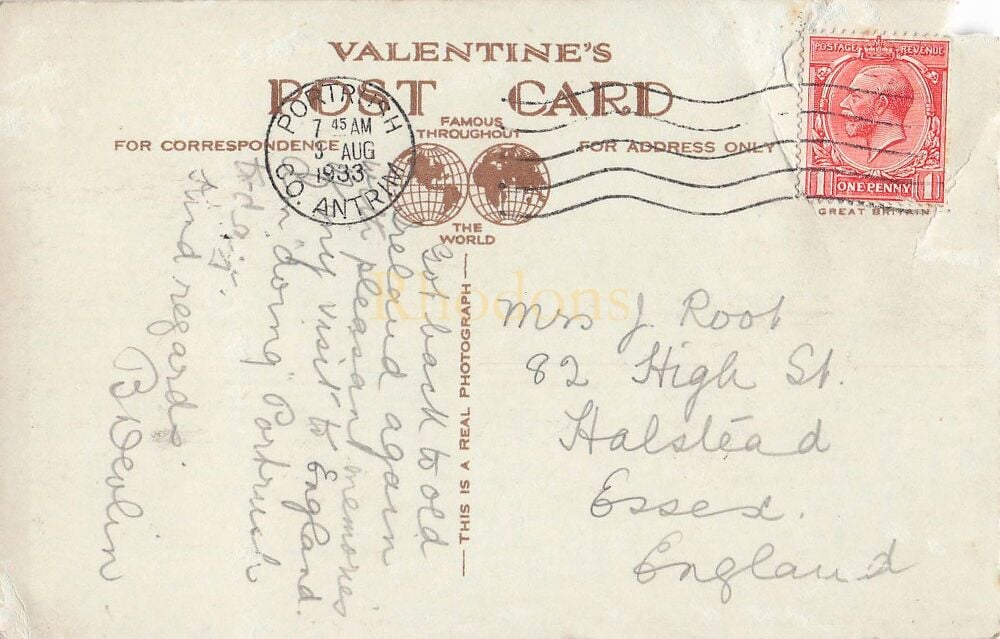 VALENTINE'S
POST CARD
FAMOUS
THROUGHOUT
THE
WORLD
FOR CORRESPONDENCE
FOR ADDRESS ONLY
POSTAGE REVENUE
1 ONE PENNY 1
GREAT BRITAIN
PORTRUSH
7 45 AM
9 AUG
1933
CO. ANTRIM
THIS IS A REAL PHOTOGRAPH
Got back to old
Ireland again
with pleasant memories
of my visit to England.
Am doing Portrush
today.
Kind regards.
B Devlin
Mrs J Root
82 High St.
Halstead
Essex.
England
Rhodons